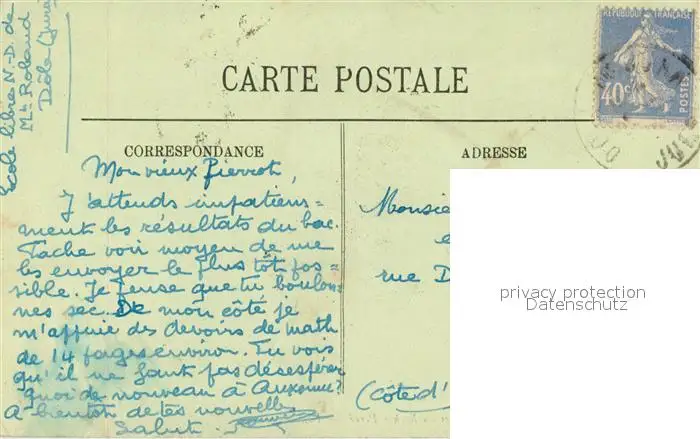 École libre N-D. de
Mt Roland
Dôle (Jura)
RÉPUBLIQUE FRANÇAISE
40c
POSTES
CARTE POSTALE
CORRESPONDANCE
ADRESSE
Mon vieux Pierrot,
J'attends impatiem-
ment les résultats du bac.
Tache voir moyen de me
les envoyer le plus tôt pos-
sible. Je pense que tu boulon-
nes sec. De mon côté je
m'appuie des devoirs de math
de 14 pages environ. Tu vois
qu'il ne faut pas désespérer
quoi de nouveau à Auxonne?
A bientôt de tes nouvelles
Salut.
Monsie
rue D
(Côte d'
privacy protection
Datenschutz